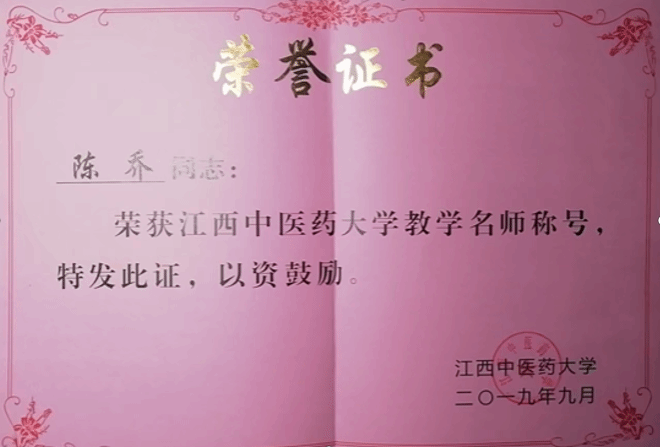 荣誉证书
陈乔同志：
荣获江西中医药大学教学名师称号，
特发此证，以资鼓励。
江西中医药大学
二〇一九年九月